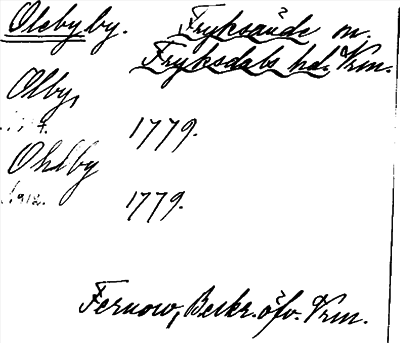 Olebyby. Fryksände sn.
Fryksdals hd. Vrm.
Olby,
1779.
Ohlby
1779.
Fernow, Beskr. öfv. Vrm.